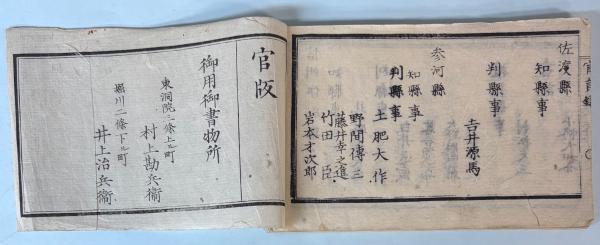 佐渡縣
知縣事
判縣事
吉井源馬
参河縣
知縣事
土肥大作
判縣事
野間傳三
藤井幸之進
竹田臣
岩本才次郎
官版
御用御書物所
東洞院三條上ル町
村上勘兵衞
堀川二條下ル町
井上治兵衞